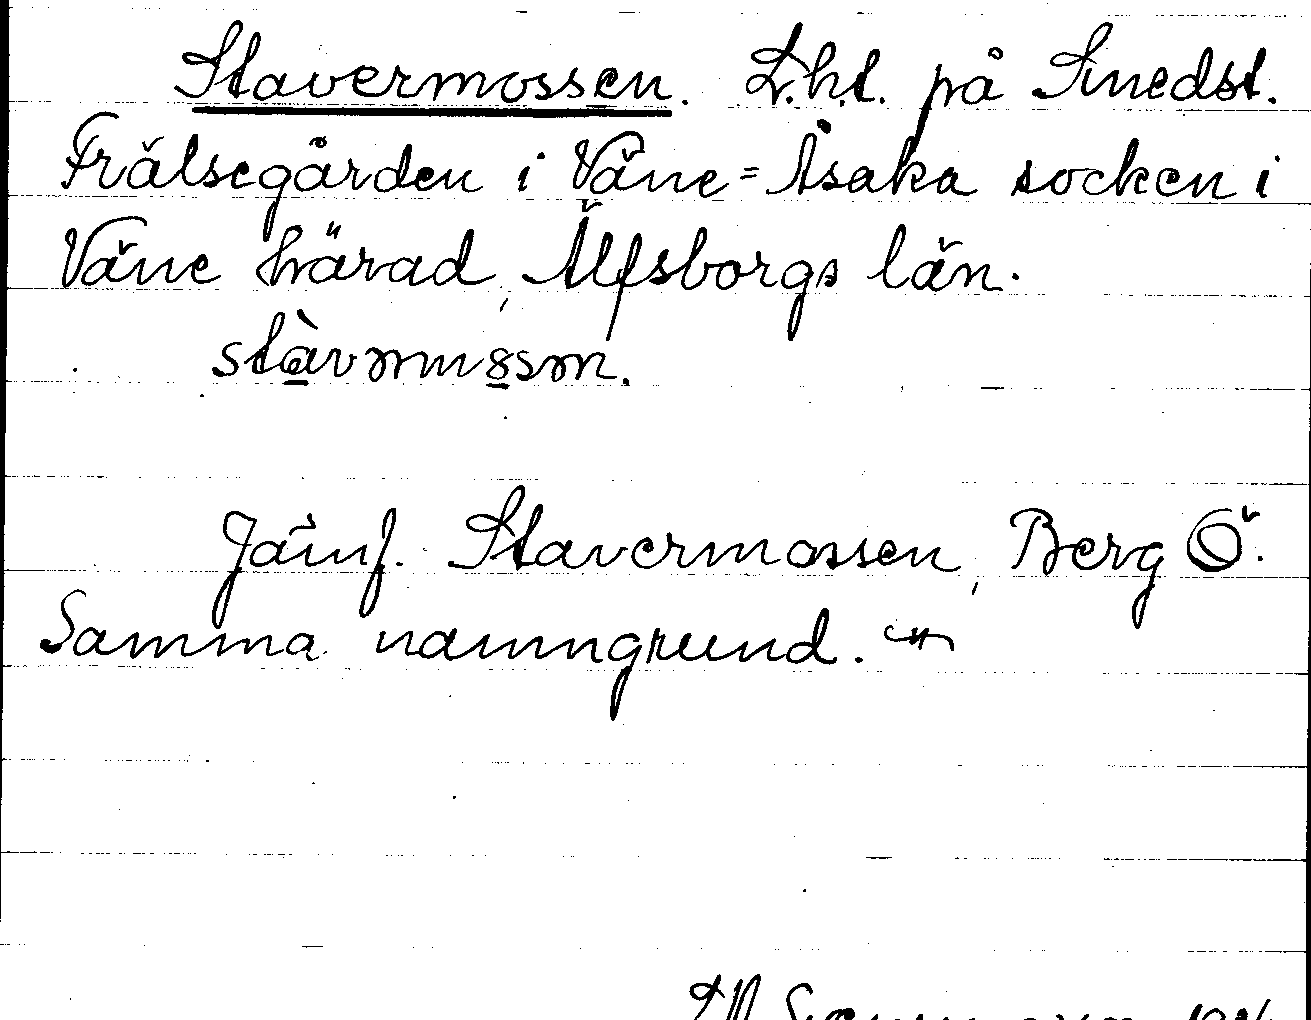 Stavermossen. L.h.t. på Smedst.
Frälsegården i Väne=Åsaka socken i
Väne härad, Älfsborgs län.
stàvərmɷsən.
Jämf. Stavermossen, Berg Ö.
Samma namngrund.